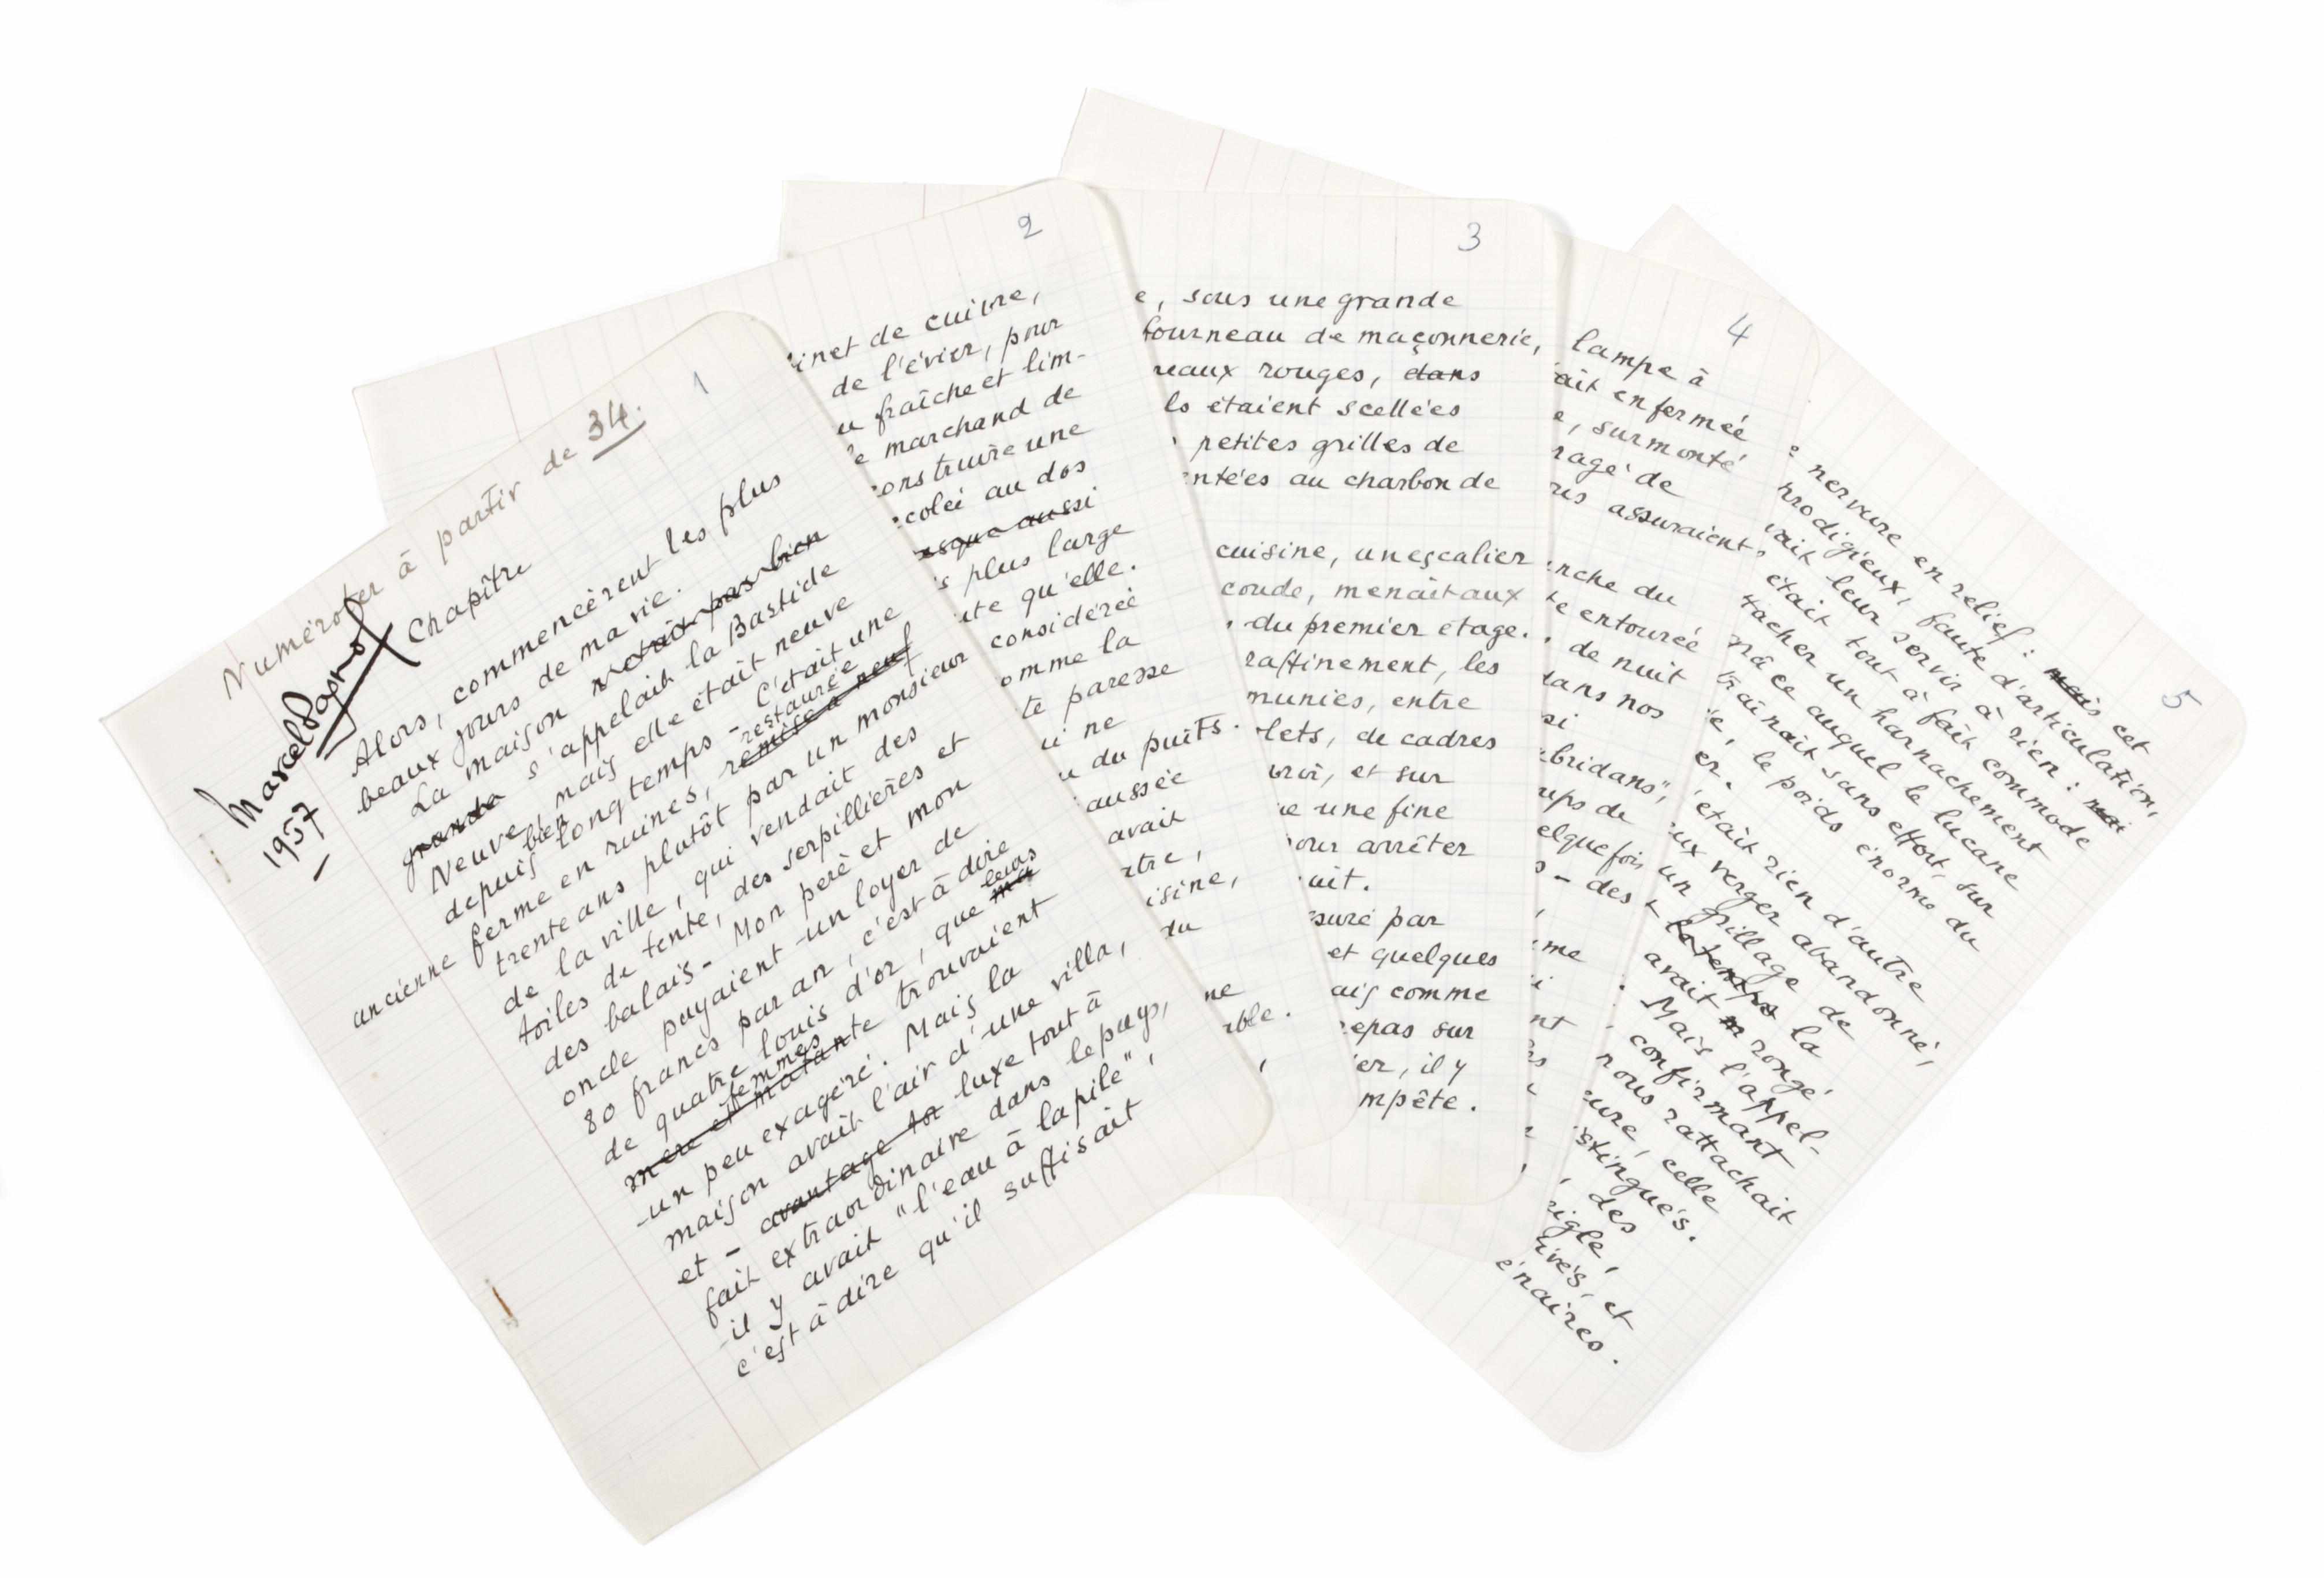 Numéroter à partir de 34.
1
Marcel Pagnol
1957
Chapître
Alors, commencèrent les plus
beaux jours de ma vie.
La maison n'était pas bien
grande s'appelait la Bastide
Neuve, mais elle était neuve
depuis bien longtemps - C'était une
ancienne ferme en ruines, remise à neuf restaurée
trente ans plutôt par un monsieur
de la ville, qui vendait des
toiles de tente, des serpillières et
des balais - Mon père et mon
oncle payaient un loyer de
80 francs par an, c'est à dire
de quatre louis d'or, que ma leurs
mère et ma tante femmes trouvaient
un peu exagéré. Mais la
maison avait l'air d'une villa,
et - avantage luxe tout à
fait extraordinaire dans le pays,
il y avait "l'eau à la pile",
c'est à dire qu'il suffisait
2
inet de cuivre,
de l'évier, pour
u fraîche et lim-
e marchand de
onstruire une
colée au dos
esque aussi
s plus large
ute qu'elle.
considérée
omme la
te paresse
ui ne
u du puits.
aussée
avait
atre,
isine,
du
ne
able.
,
3
e, sous une grande
fourneau de maçonnerie,
reaux rouges, dans
ls étaient scellées
petites grilles de
ntées au charbon de
cuisine, un escalier
coude, menait aux
, du premier étage.
raffinement, les
munies, entre
lets, de cadres
uroi, et sur
e une fine
pour arrêter
uit.
suré par
et quelques
ais comme
repas sur
er, il y
mpête.
4
lampe à
ait enfermée
e, surmonté
ragé de
us assuraient,
nche du
te entourée
, de nuit
dans nos
si
bridans",
ups de
elquefois
s - des
,
me
i
nt
rs
5
e nervure en relief : mais cet
prodigieux, faute d'articulation,
vait leur servir à rien : mai
était tout à fait commode
ttacher un harnachement
râce auquel le lucane
traînait sans effort, sur
e, le poids énorme du
er.
était rien d'autre
eux verger abandonné,
un grillage de
le temps la
avait m rongé.
Mais l'appel-
confirmant
nous rattachait
eure, celle
stingués.
, des
eigle,
ivés, et
énaires.